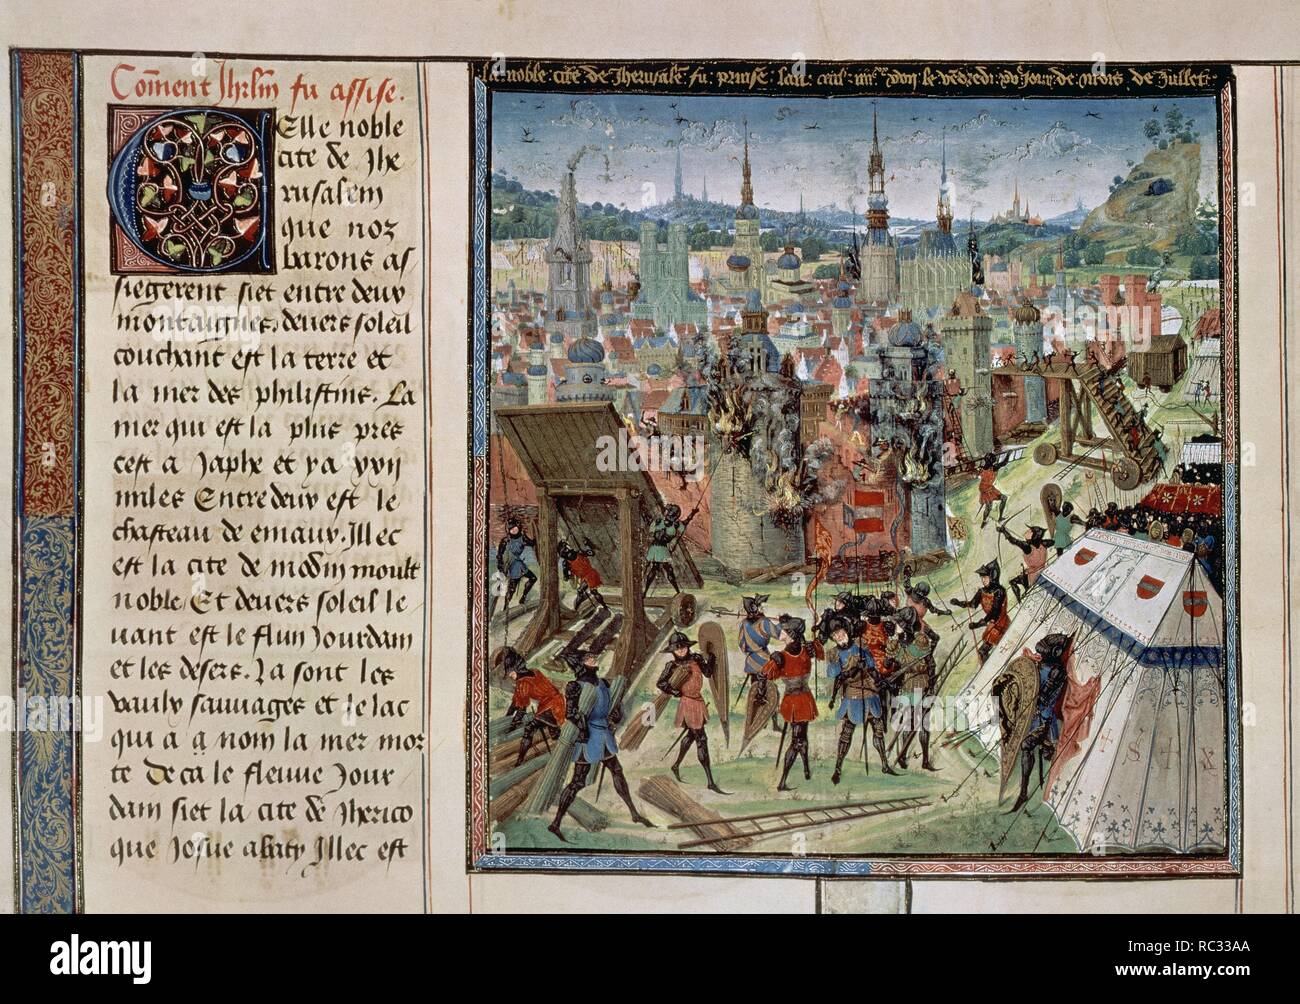 Com̄ent Jhrlm̄ fu assise.
Celle noble
cite de Jhe
rusalem
que noz
barons as
siegerent siet entre deux
montaignes. devers soleil
couchant est la terre et
la mer des philistins. La
mer qui est la plus pres
cest a Japhe et y a xviij
milles Entre deux est le
chasteau de emaux. Illec
est la cite de modin moult
noble. Et devers soleil le
vant est le flun Jourdain
et les desers. La sont les
vaulx sauvages et le lac
qui a a nom̄ la mer mor
te deca le fleuve Jour
dain siet la cite de Jherico
que Josue abaty Illec est
La noble cite de Jherusalē fu prinse lan le vendredi xvᵉ jour de mois de Jullet
a
alamy
Image ID: RC33AA
www.alamy.com